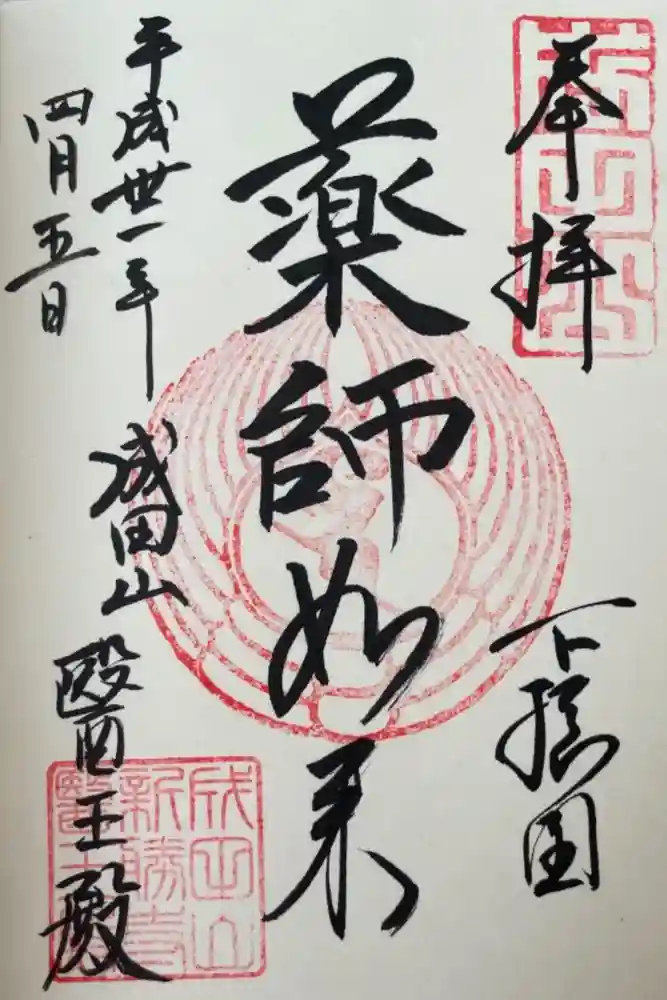 奉拝
下総国
薬師如来
平成卅一年
四月五日
成田山
醫王殿
成田山
新勝寺
醫王殿